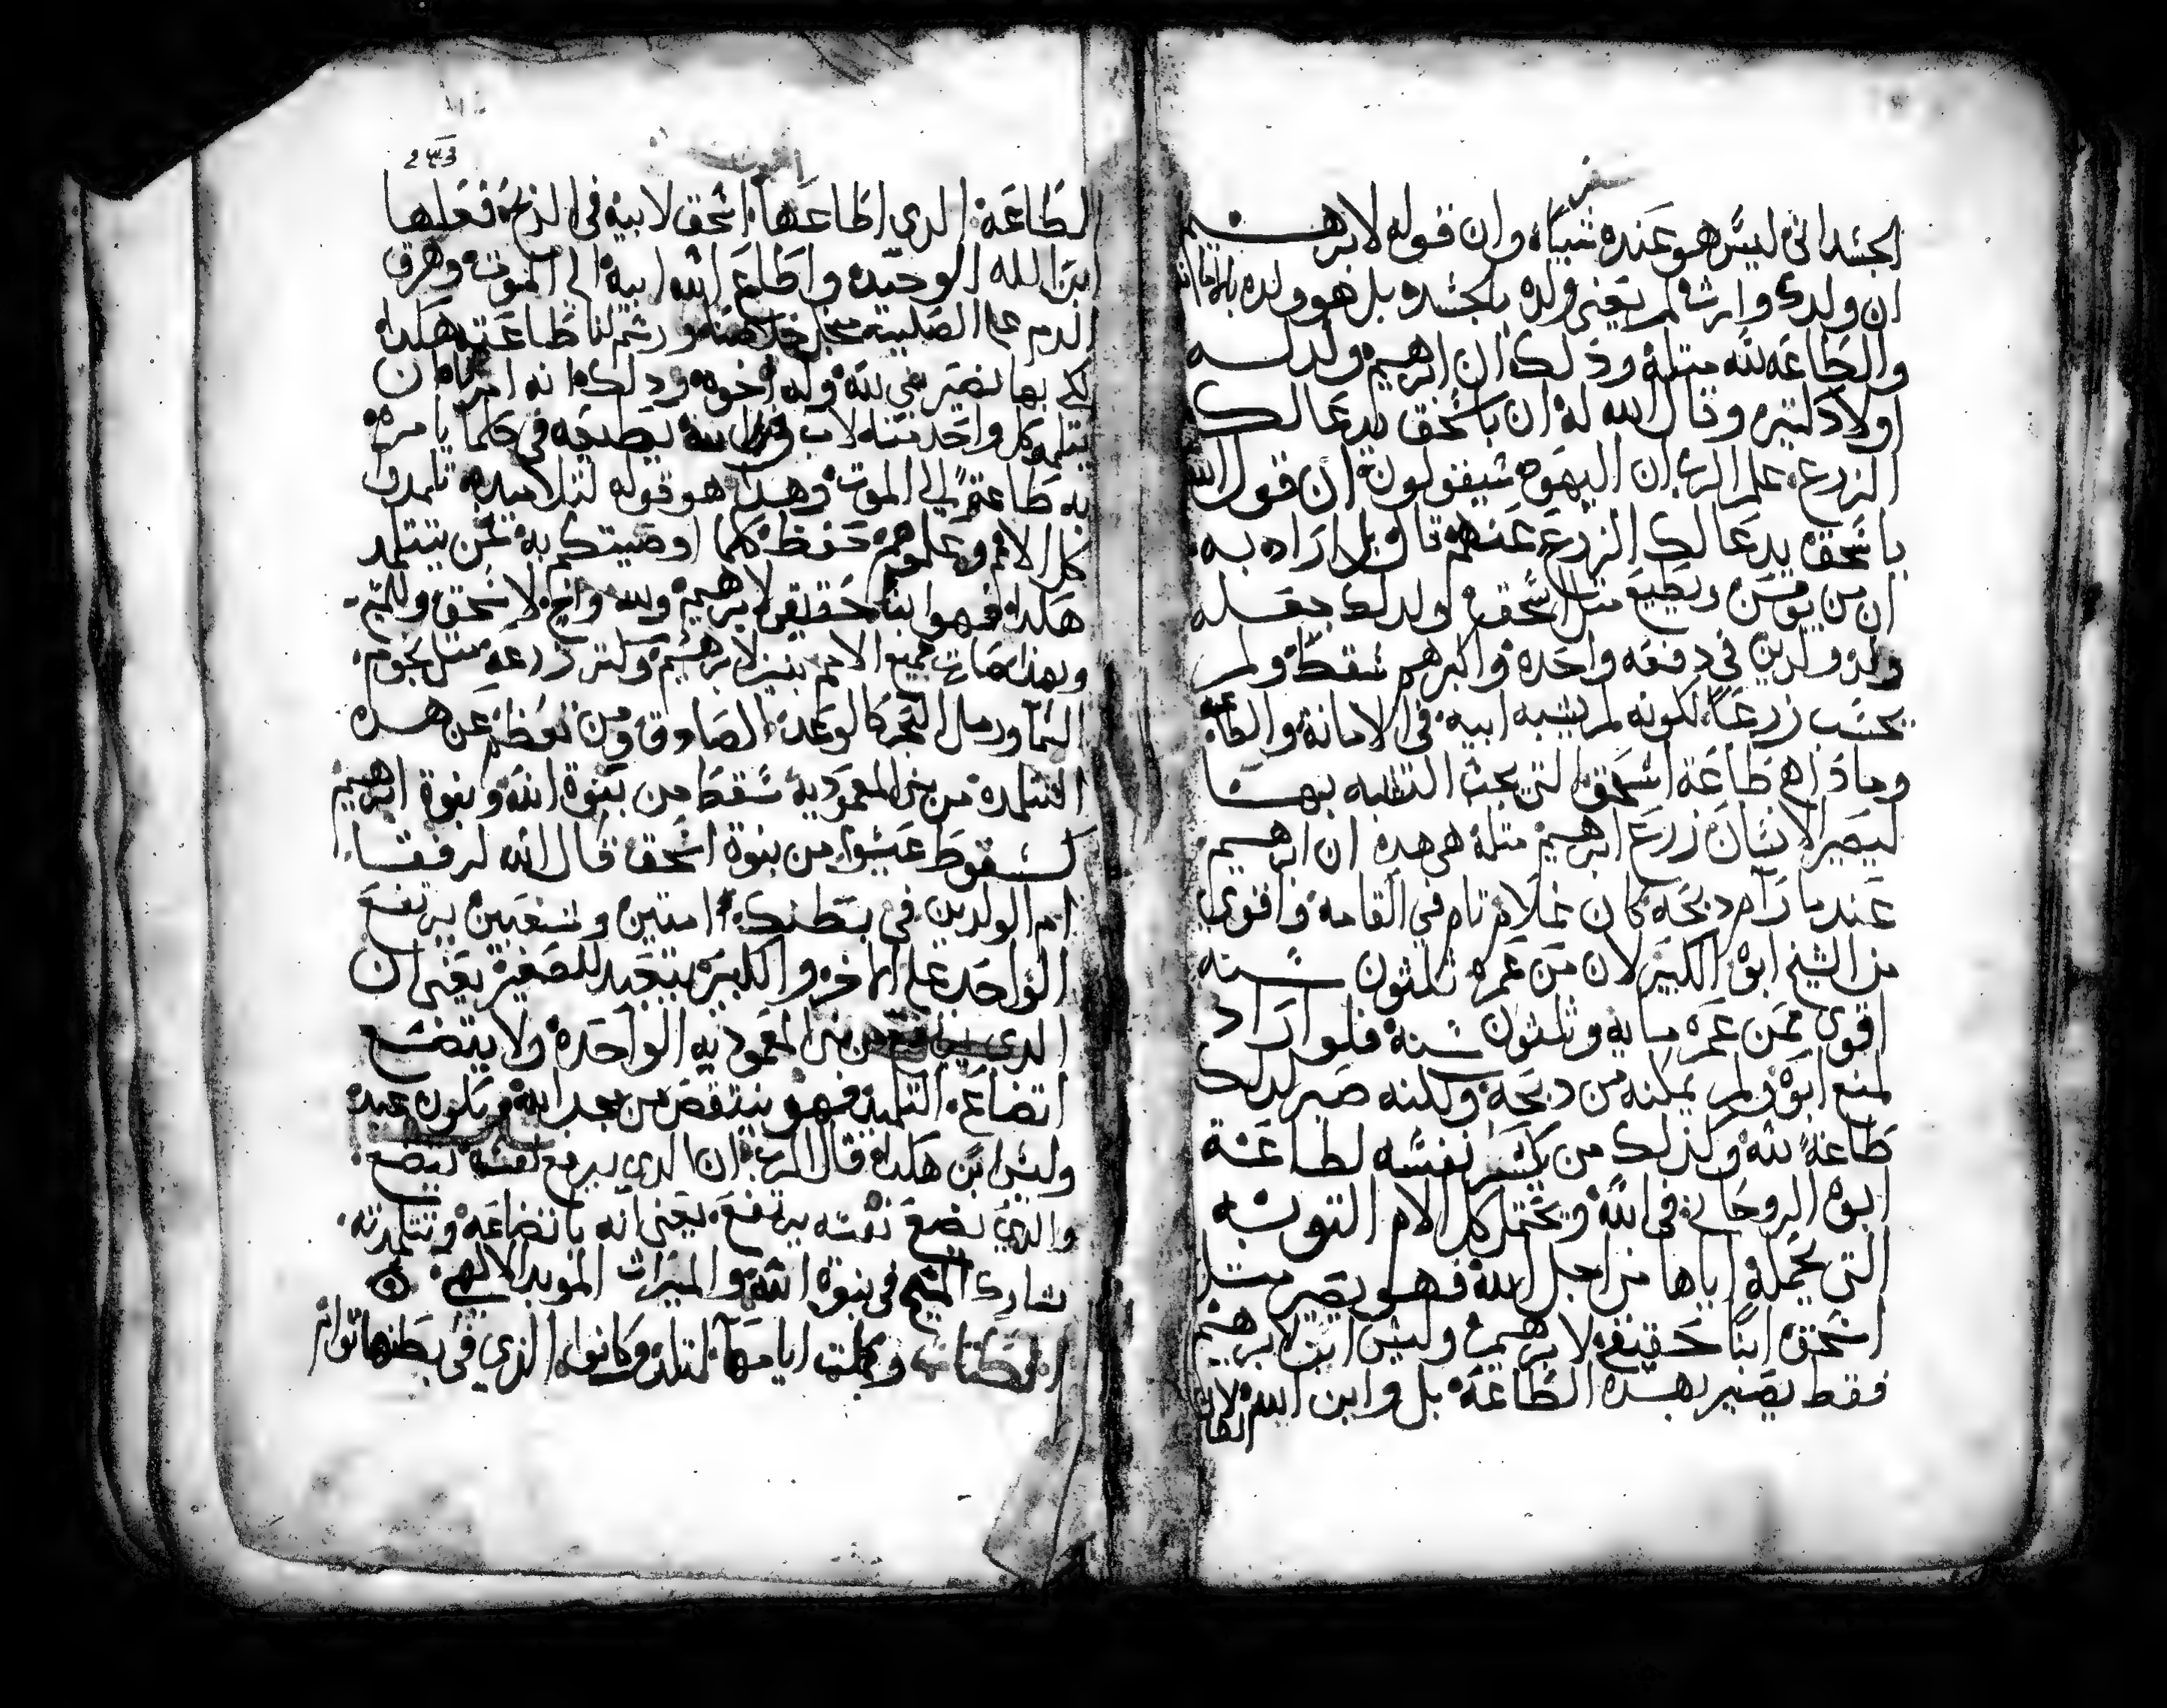 سفر
الجسداني ليس هو عنده شيًا، وان قوله لابرهيم
ان ولدك وارثك لم يعني ولده بالجسد بل هو ولده بالامانه
والطاعه لله مثله وذلك ان ابرهيم ولد له
اولاد كتير وقال الله له ان باسحق يدعا لك
الزرع علم الرب ان اليهود سيقولون ان قول الله
باسحق يدعا لك الزرع عنهم قال بل اراد به
ان من يومن ويطيع مثل اسحق ولدلك جعله
ولد ولدين في دفعه واحده واكبرهم سقط ولم
يحسب زرعًا لكونه لم يشبه ابيه في الامانة والطاعه
وماذا هي طاعة اسحق التي يجب التشبه بها
ليصير الانسان زرع ابرهيم مثله هي هده ان ابرهيم
عندما رام دبحه كان غلام تام في القامه واقوى
من الشيخ ابوه الكبير لان من عمره ثلثون سنه
اقوى ممن عمره مايه وثلثون سنة فلو اراد
لمنع ابوه ولم يمكنه من دبحه ولكنه صبر لدلك
طاعةً لله وكذلك من كسر نفسه لطاعة
ابوه الروحاني في الله ويحتمل كل الام التوبه
التي يحمله اياها من اجل الله فهو يصير مثل
اسحق ابنًا حقيقي لابرهيم وليس ابن لابرهيم
فقط يصير بهده الطاعة بل وابن الله لان
الطا
243
الطاعة الدي اطاعها اسحق لابيه في الذبح فعلها
ابن الله الوحيد واطاع الله ابيه الي الموت وهرق
الدم على الصليب من اجل خلاصنا ورسم لنا طاعته هكدا
لكي بها نصير بني لله وله اخوه ودلك انه امر ان
يتلمد كل واحد منا لاب يطيعه في كلما يامره
به طاعةً الي الموت وهدا هو قوله لتلاميده تلمدوا
كل الامم وعلموهم حفظ كلما اوصيتكم به فمن يتتلمد
هكدا فهو ابنًا حقيقي لابرهيم ولله واخ لاسحق وللمسيح
وبهذا صارت جميع الامم بنين لابرهيم وكتر زرعه مثل نجوم
السما ورمل البحر كالوعد الصادق ومن تعظم عن هده
التتلمده من بني المعمودية سقط من بنوة الله وبنوة ابرهيم
كسقوط عيسوا من بنوة اسحق قال الله لرفقا
ام الولدين في بطنك امتين وشعبين يرتفع
الواحد علي الاخر والكبير يتعبد للصغير يعني ان
الدي يرتفع من بني المعمودية الواحدة ولا يتضع
اتضاع التلميد فهو ينتقص من مجد الله ويكون عبده
وليس ابن هكدا قال الرب ان الدي يرفع نفسه يتضع
والذي يضع نفسه يرتفع يعني انه باتضاعه وتتلمدته
يشارك المسيح في بنوة الله والميراث الموبد الالهي
وكملت ايامها لتلد وكانوا الذي في بطنها توام